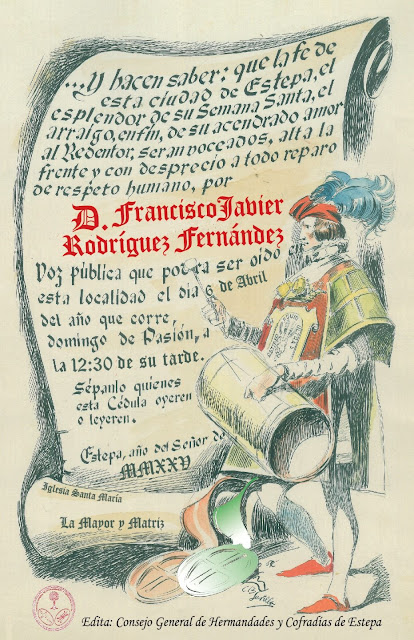 ...Y hacen saber: que la fe de
esta ciudad de Estepa, el
esplendor de su Semana Santa, el
arraigo, enfin, de su acendrado amor
al Redentor, seran voceados, alta la
frente y con desprecio a todo reparo
de respeto humano, por
D. Francisco Javier
Rodríguez Fernández
Voz pública que podra ser oído
esta localidad el día 6 de Abril
del año que corre,
domingo de Pasión, a
la 12:30 de su tarde.
Sépanlo quienes
esta Cédula oyeren
o leyeren.
Estepa, año del Señor de
MMXXV
Iglesia Santa María
La Mayor y Matriz
Edita: Consejo General de Hermandades y Cofradías de Estepa